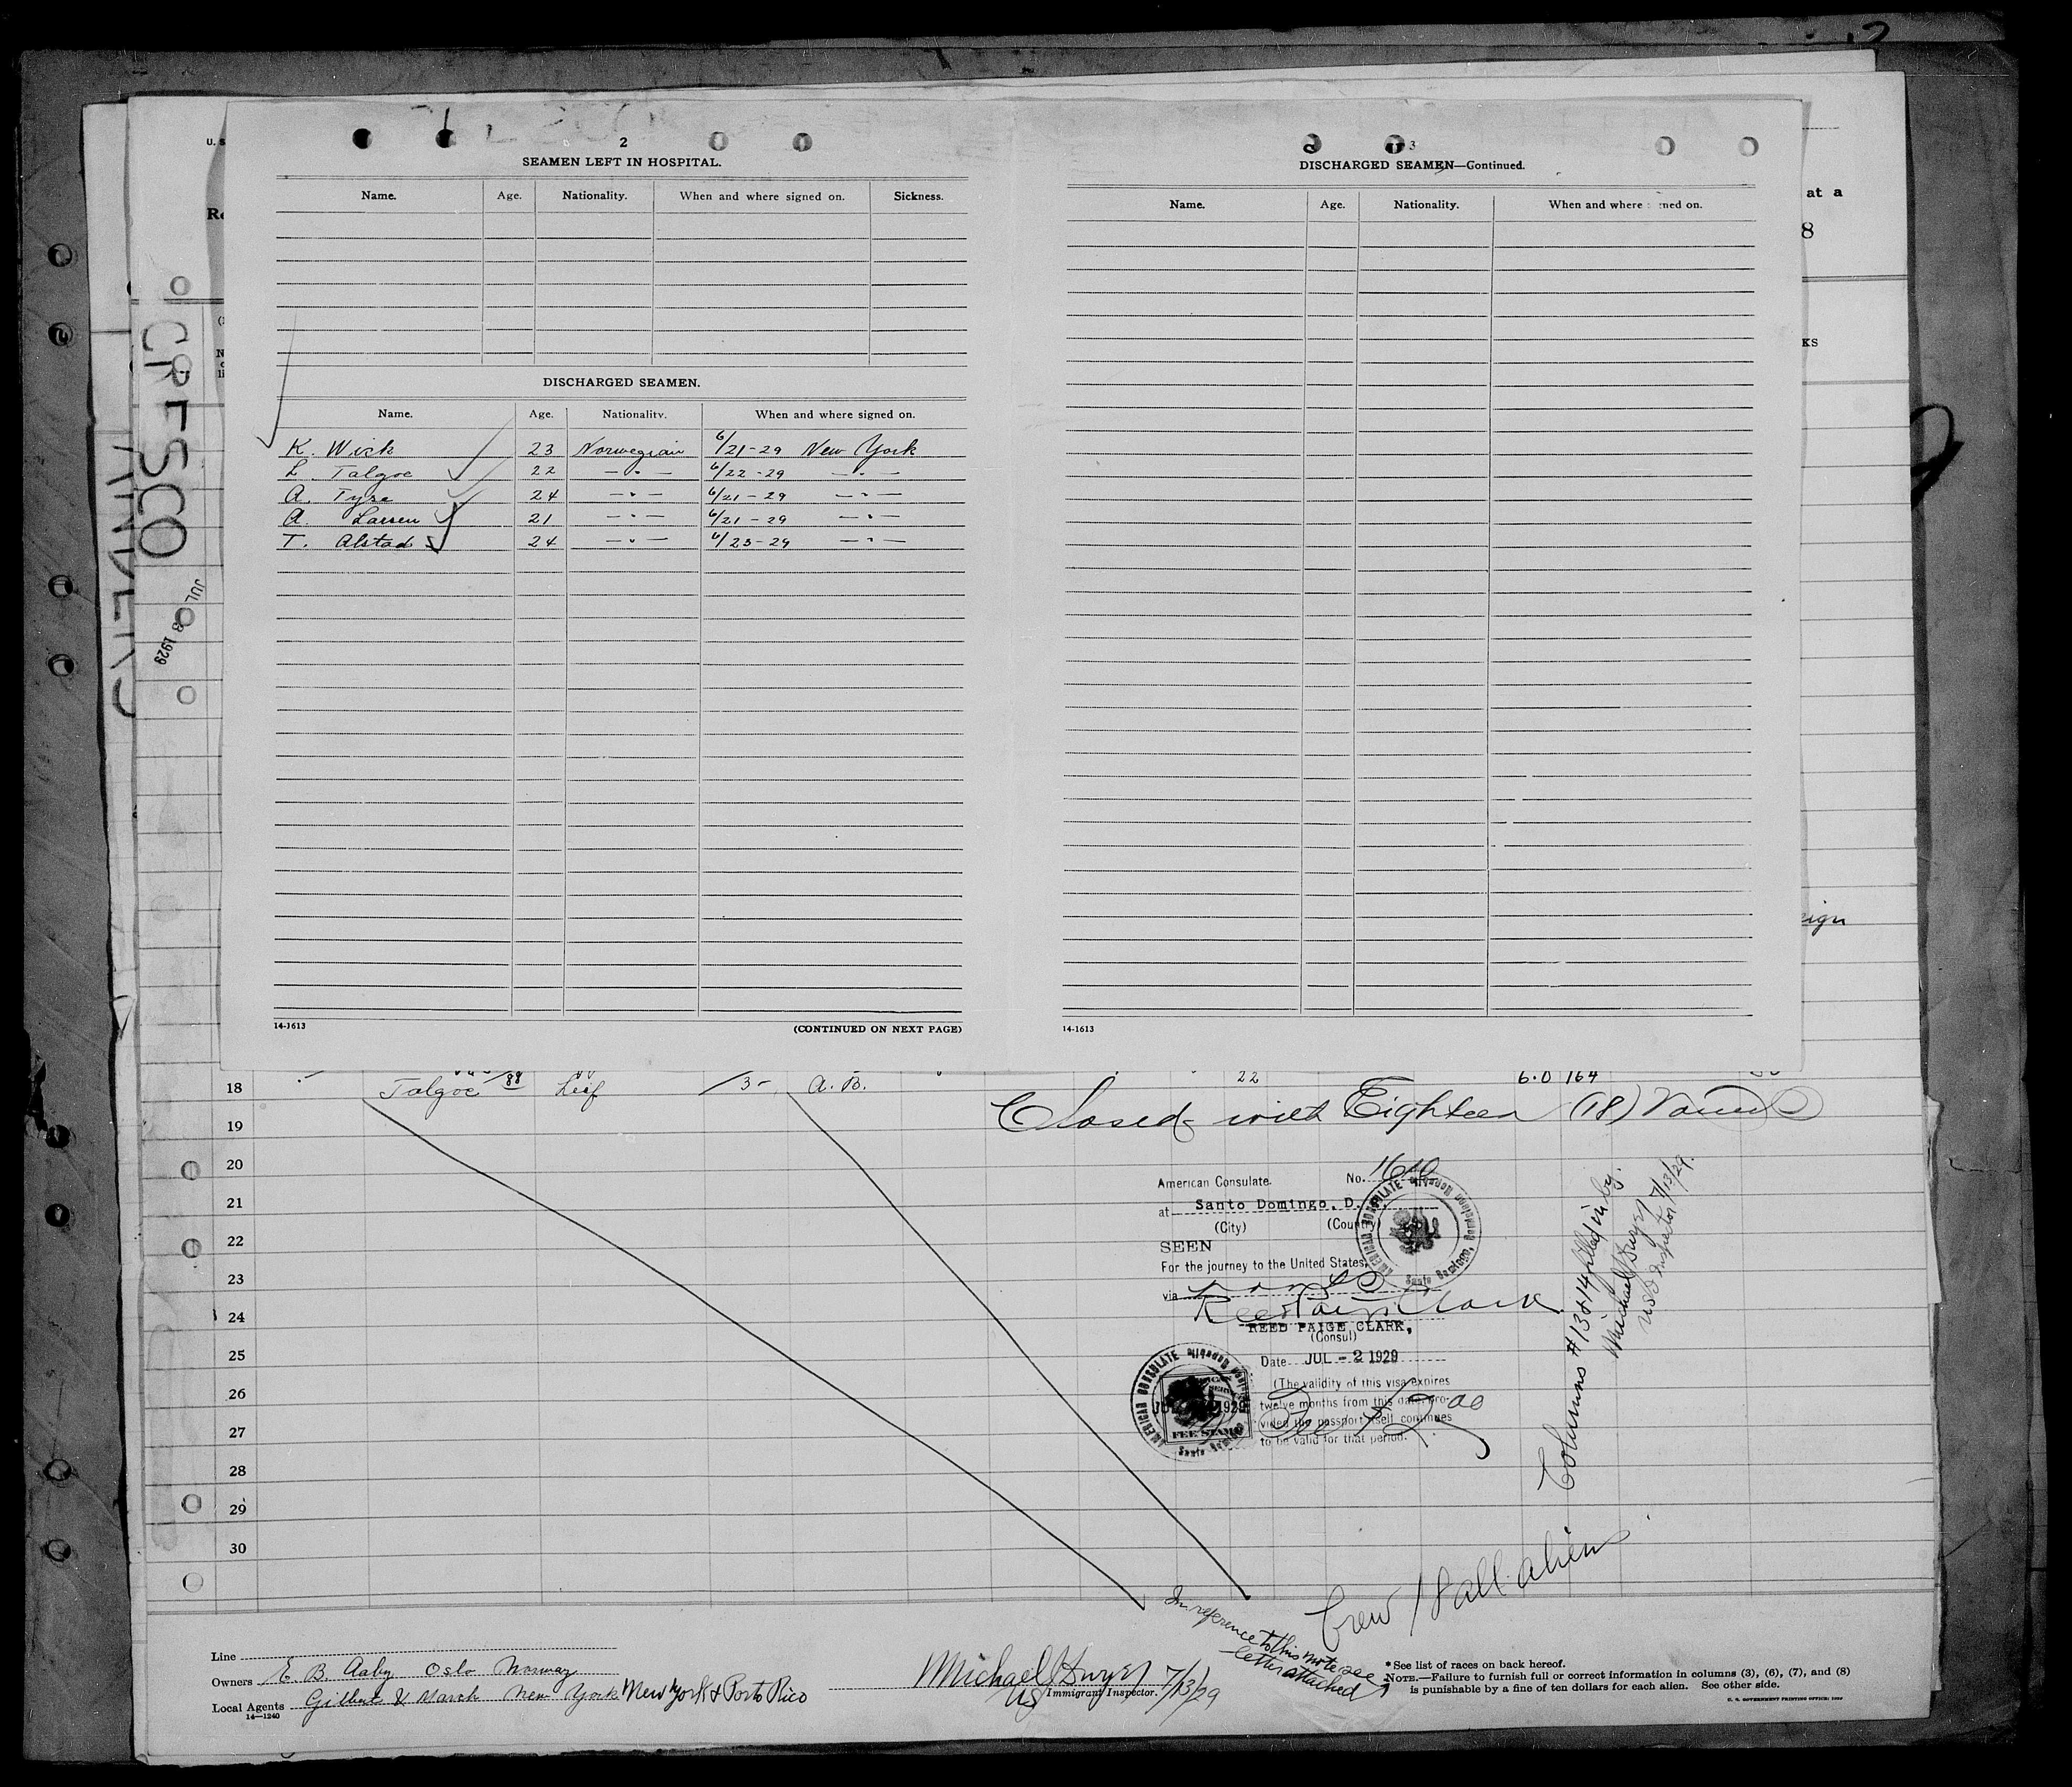 2
SEAMEN LEFT IN HOSPITAL.
Name. Age. Nationality. When and where signed on. Sickness.
DISCHARGED SEAMEN.
Name. Age. Nationality. When and where signed on.
K. Wick 23 Norwegian 6/21-29 New York
L. Talgoe 22 — " — 6/22-29 — " —
A. Tyse 24 — " — 6/21-29 — " —
A. Larsen 21 — " — 6/21-29 — " —
T. Alstad 24 — " — 6/23-29 — " —
14-1613 (CONTINUED ON NEXT PAGE)
3
DISCHARGED SEAMEN—Continued.
Name. Age. Nationality. When and where ned on.
14-1613
U. S
at a
8
KS
eign
CRESCO
JUL 3 1929
18 Talgoe 88 Leif /3- A. B. 22 6.0 164
19
20
21
22
23
24
25
26
27
28
29
30
Closed with Eighteen (18) Names
American Consulate. No. 1610
at Santo Domingo, D.
(City) (Country)
SEEN
For the journey to the United States,
via
Reed Paige Clark
REED PAIGE CLARK,
(Consul)
Date JUL - 2 1929
(The validity of this visa expires
twelve months from this date, pro-
vided the passport itself continues
to be valid for that period.
AMERICAN CONSULATE
Santo Domingo, Dominican Republic
AMERICAN CONSULATE
1929
FEE STAMP
Columns #13 & 14 filled in by
Michael Dwyer 7/13/29.
US Inspector
Crew 18 all aliens
In reference to this note see
letter attached
Line
Owners E. B. Aaby Oslo Norway
Local Agents Gilbert & March New York New York & Porto Rico
14—1240
Michael Dwyer 7/13/29
US Immigrant Inspector.
* See list of races on back hereof.
NOTE.—Failure to furnish full or correct information in columns (3), (6), (7), and (8)
is punishable by a fine of ten dollars for each alien. See other side.